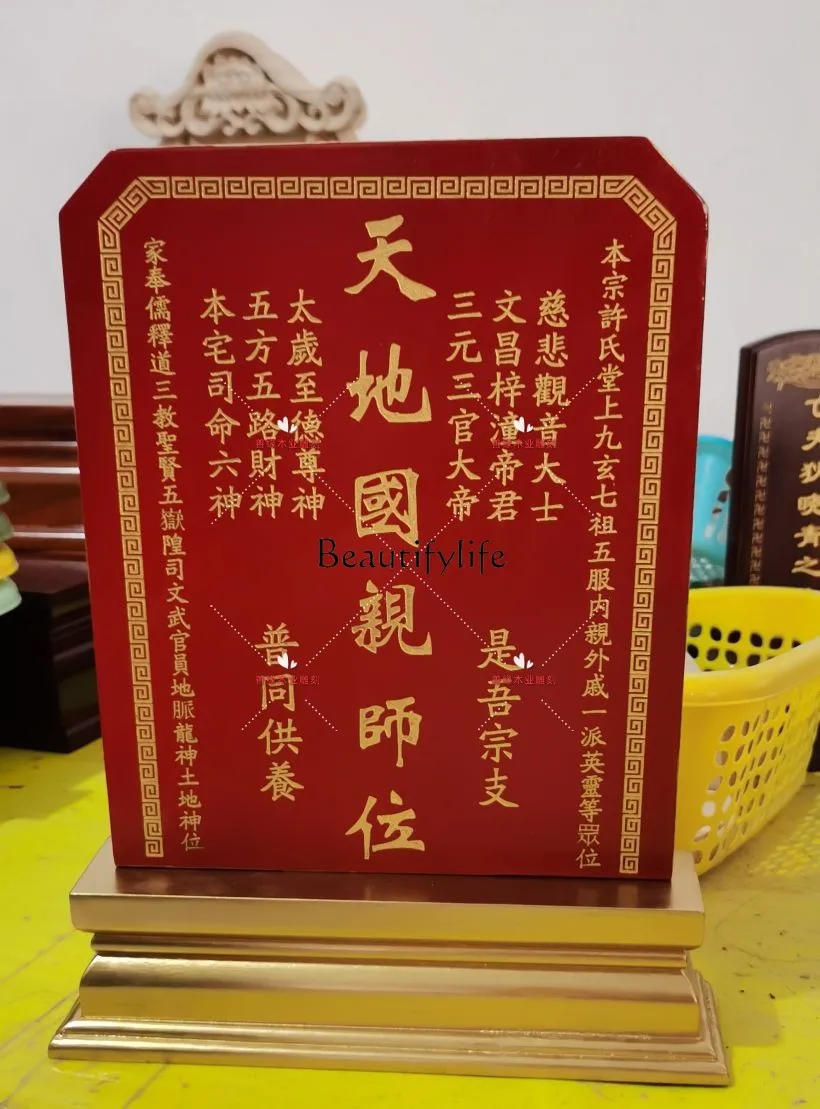 本宗許氏堂上九玄七祖五服内親外戚一派英靈等眾位
慈悲觀音大士
文昌梓潼帝君
三元三官大帝
是吾宗支
天地國親師位
太歲至德尊神
五方五路財神
本宅司命六神
普同供養
家奉儒釋道三教聖賢五嶽隍司文武官員地脈龍神土地神位
Beautifylife
善缘木业雕刻
善缘木业雕刻
善缘木业雕刻
善缘木业雕刻